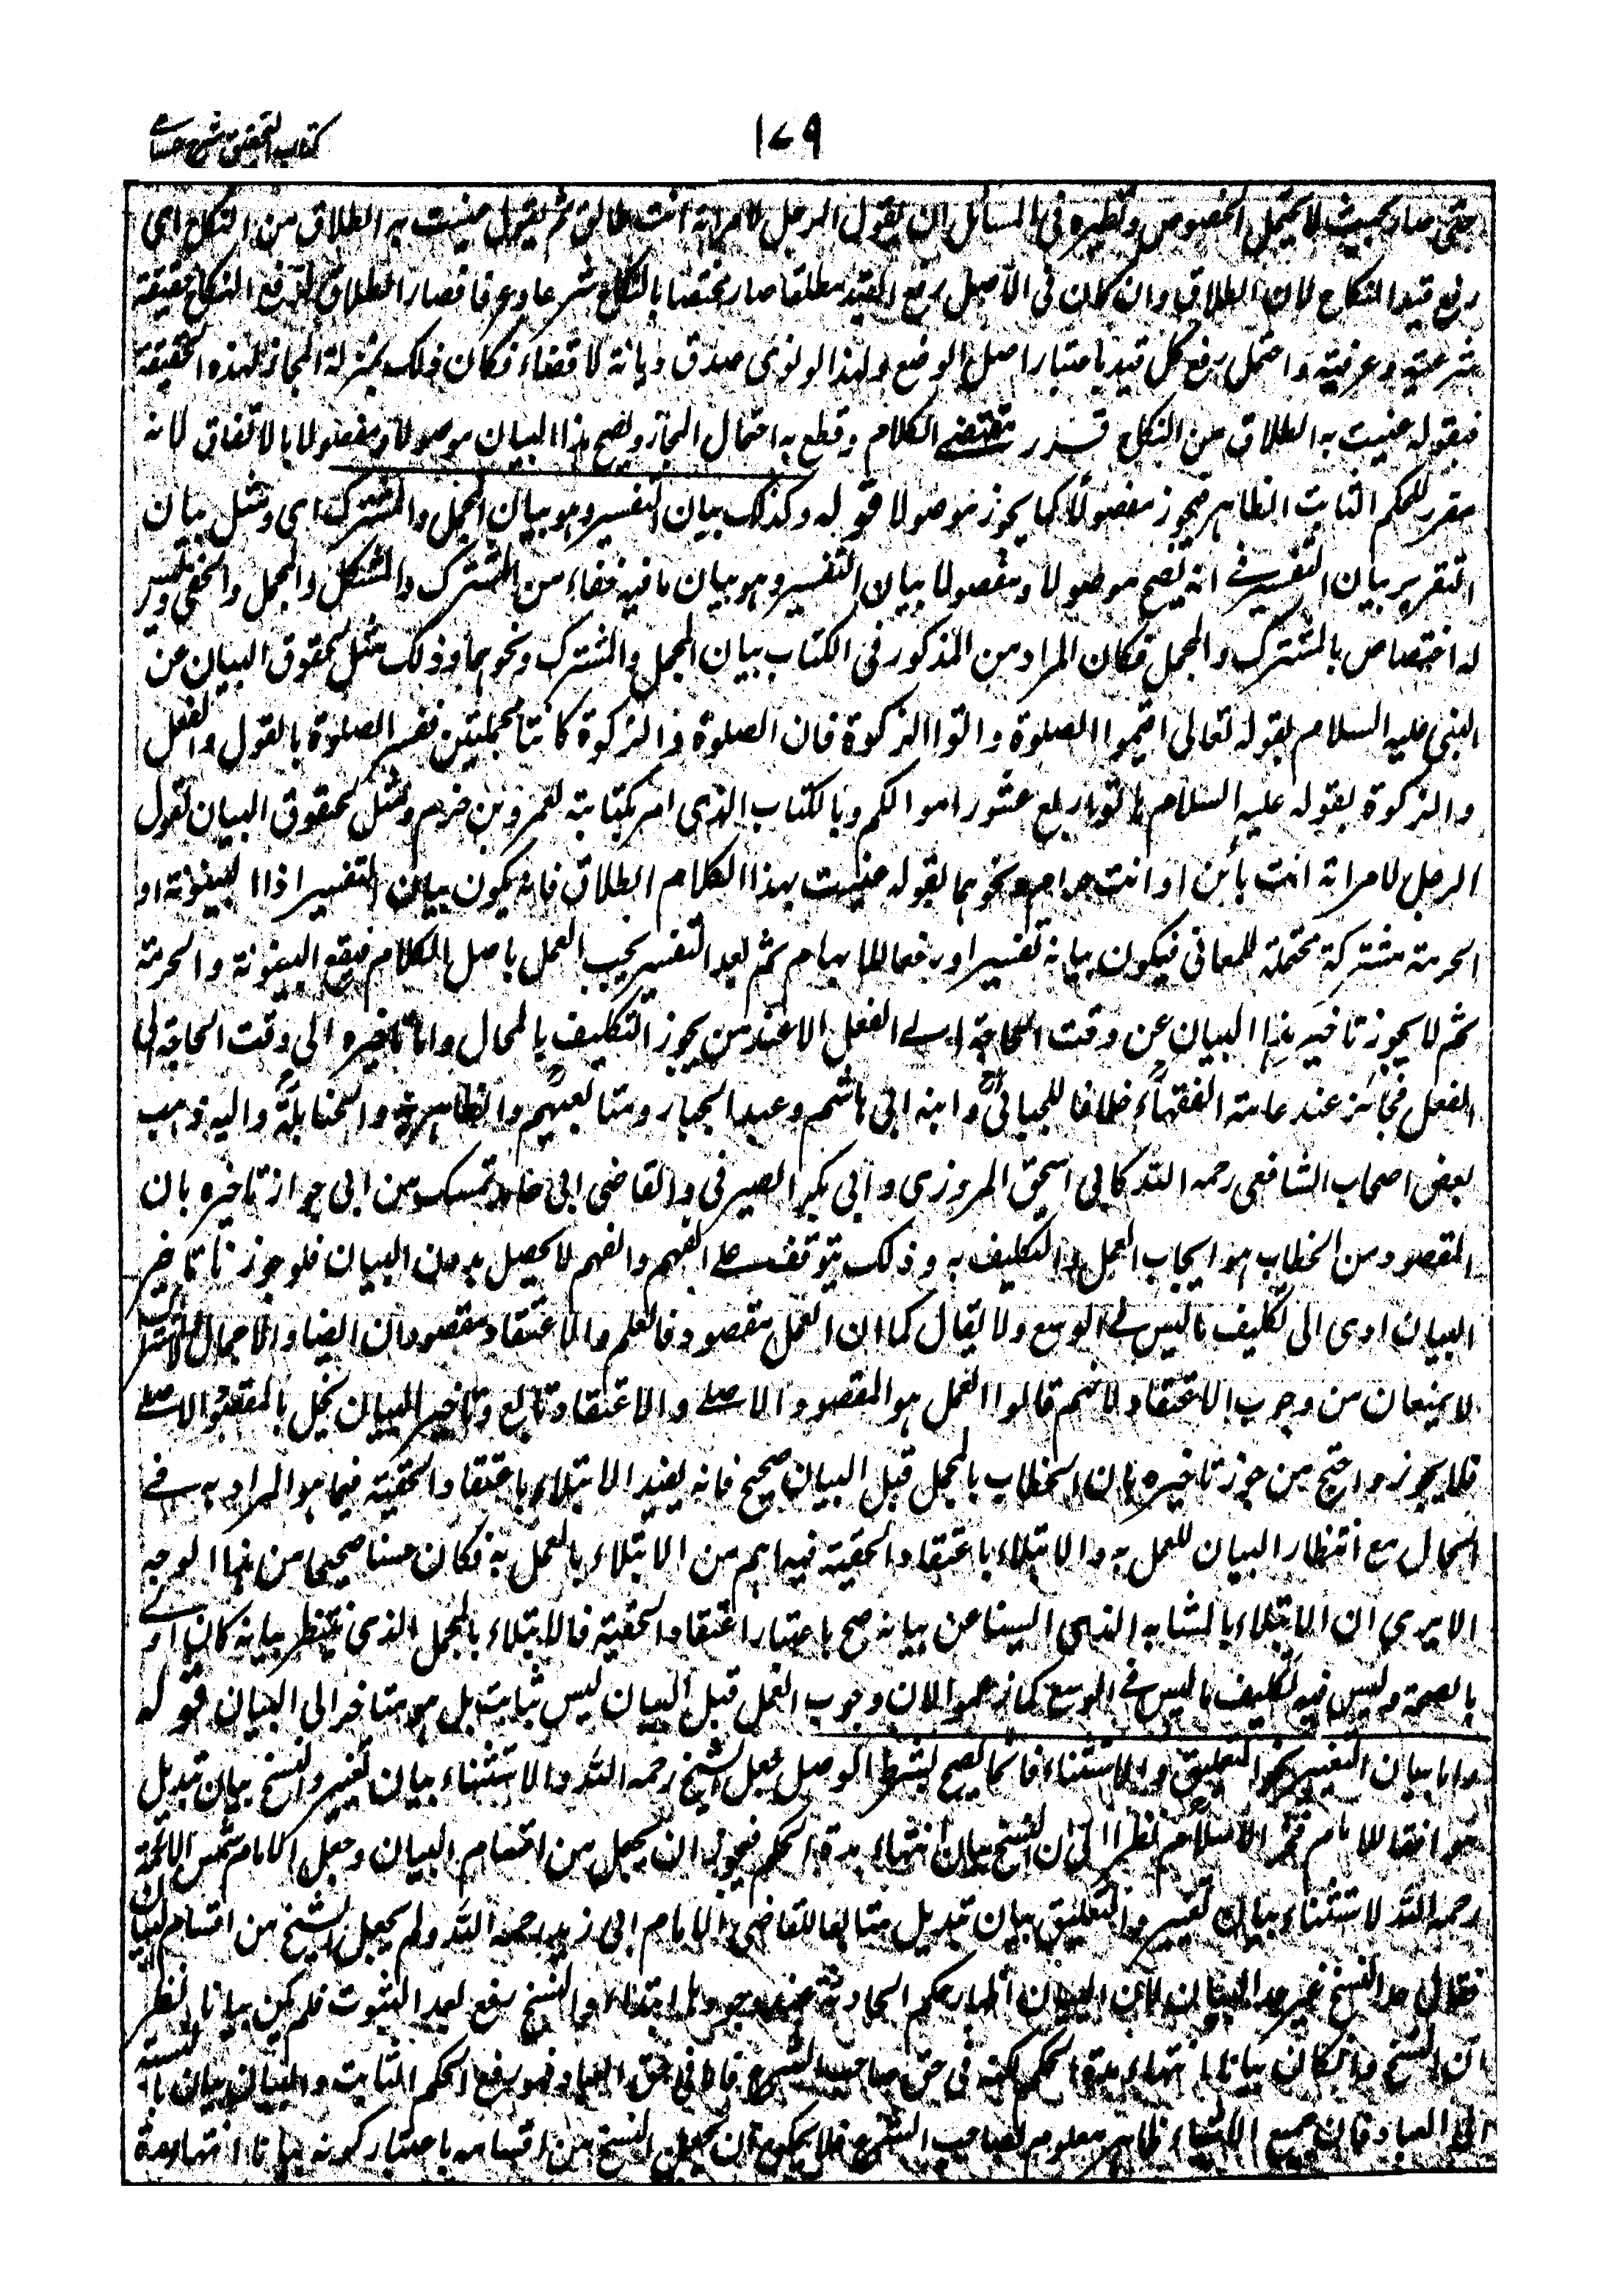 كتاب التحقيق شرح حسامي
١٧٩
حتى صار بحيث لا يحتمل الخصوص ونظيره فى المسائل ان يقول الرجل لامرأته انت طالق ثم يقول عنيت به الطلاق من النكاح اى
رفع قيد النكاح لان الطلاق وان كان فى الاصل رفع القيد مطلقا صار مختصا بالنكاح شرعا وعرفا فصار الطلاق لرفع النكاح حقيقة
شرعية وعرفية واحتمل رفع كل قيد باعتبار اصل الوضع ولهذا لو نوى صدق ديانة لا قضاء فكان ذلك بمنزلة المجاز لهذه الحقيقة
فبقوله عنيت به الطلاق من النكاح قرر مقتضى الكلام وقطع به احتمال المجاز ويصح هذا البيان موصولا ومفصولا بالاتفاق لانه
مقرر للحكم الثابت الظاهر فيجوز مفصولا كما يجوز موصولا قوله وكذلك بيان التفسير وهو بيان المجمل والمشترك اى ومثل بيان
التقرير بيان التفسير فى انه يصح موصولا ومفصولا بيان التفسير وهو بيان ما فيه خفاء من المشترك والمشكل والمجمل والخفى وليس
له اختصاص بالمشترك والمجمل فكان المراد من المذكور فى الكتاب بيان المجمل والمشترك ونحوهما وذلك مثل لحقوق البيان عن
النبى عليه السلام بقوله تعالى اقيموا الصلوة واتوا الزكوة فان الصلوة والزكوة كانتا مجملتين ففسر الصلوة بالقول والفعل
والزكوة بقوله عليه السلام هاتوا ربع عشور اموالكم وبالكتاب الذى امر بكتابته لعمرو بن حزم ومثل لحقوق البيان لقول
الرجل لامرأته انت بائن او انت حرام ونحوهما بقوله عنيت بهذا الكلام الطلاق فانه يكون بيان التفسير اذا البينونة او
الحرمة مشتركة محتملة للمعانى فيكون بيانه تفسيرا ورفعا للابهام ثم بعد التفسير يجب العمل باصل الكلام فيقع البينونة والحرمة
ثم لا يجوز تاخير هذا البيان عن وقت الحاجة الى الفعل الا عند من يجوز التكليف بالمحال واما تاخيره الى وقت الحاجة الى
الفعل فجائز عند عامة الفقهاء خلافا للجبائى وابنه ابى هاشم وعبد الجبار ومتابعيهم والظاهرية والحنابلة واليه ذهب
بعض اصحاب الشافعى رحمه الله كابى اسحق المروزى وابى بكر الصيرفى والقاضى ابى حامد تمسك من ابى جواز تاخيره بان
المقصود من الخطاب هو ايجاب العمل والتكليف به وذلك يتوقف على الفهم والفهم لا يحصل بدون البيان فلو جوزنا تاخير
البيان ادى الى تكليف ما ليس فى الوسع ولا يقال كما ان العمل مقصود فالعلم والاعتقاد مقصودان ايضا والاجمال والاشتراك
لا يمنعان من وجوب الاعتقاد لانهم قالوا العمل هو المقصود الاصلى والاعتقاد تابع وتاخير البيان يخل بالمقصود الاصلى
فلا يجوز واحتج من جوز تاخيره بان الخطاب بالمجمل قبل البيان صحيح فانه يفيد الابتلاء باعتقاد الحقية فيما هو المراد به فى
الحال مع انتظار البيان للعمل به والابتلاء باعتقاد الحقية فيه اهم من الابتلاء بالعمل به فكان حسنا صحيحا من هذا الوجه
الا يرى ان الابتلاء بالمتشابه الذى ايسنا عن بيانه صح باعتبار اعتقاد الحقية فالابتلاء بالمجمل الذى ينتظر بيانه كان اولى
بالصحة وليس فيه تكليف ما ليس فى الوسع كما زعموا لان وجوب العمل قبل البيان ليس بثابت بل هو متاخر الى البيان قوله
واما بيان التغيير نحو التعليق والاستثناء فانما يصح بشرط الوصل جعل الشيخ رحمه الله والاستثناء بيان تغيير والنسخ بيان تبديل
موافقا للامام فخر الاسلام نظرا الى ان النسخ بيان انتهاء مدة الحكم فيجوز ان يجعل من اقسام البيان وجعل الامام شمس الائمة
رحمه الله الاستثناء بيان تغيير والتعليق بيان تبديل متابعا للقاضى الامام ابى زيد رحمه الله ولم يجعل النسخ من اقسام البيان
فقال حد النسخ غير حد البيان لان البيان اظهار حكم الحادثة عند وجودها ابتداء والنسخ رفع بعد الثبوت فلم يكن بيانا نظر
ان النسخ وان كان بيانا انتهاء مدة الحكم لكنه فى حق صاحب الشرع فاما فى حق العباد فهو رفع الحكم الثابت والبيان بيان بالنسبة
الى العباد فان جميع الاشياء ظاهر معلوم لصاحب الشرع فلا يمكن ان يجعل النسخ من اقسامه باعتبار كونه بيانا انتهاء مدة